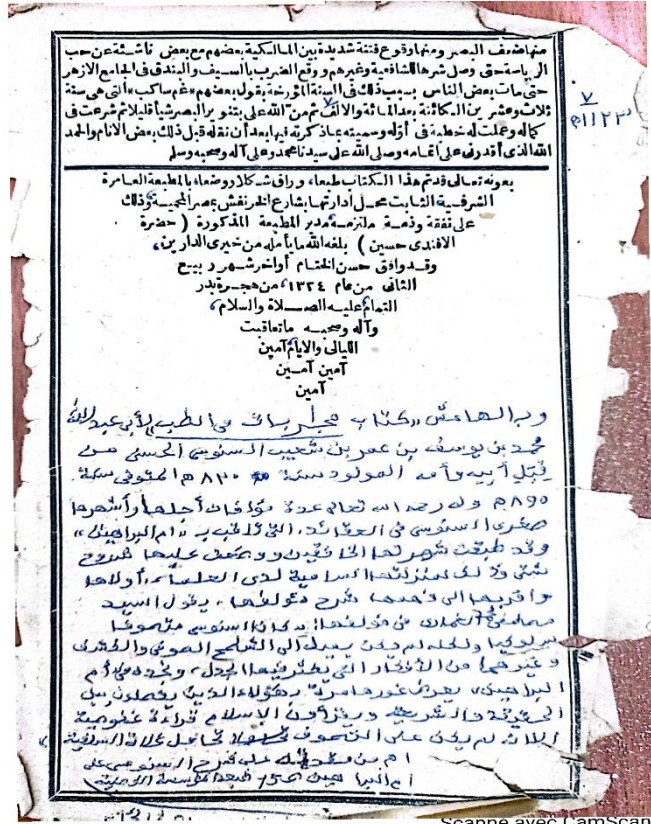 منها ضعف البصر ومنها وقوع فتنة شديدة بين المالكية بعضهم مع بعض ناشئة عن حب
الرياسة حتى وصل شرها للشافعية وغيرهم ووقع الضرب بالسيف والبندق فى الجامع الازهر
حتى مات بعض الناس بسبب ذلك فى السنة المؤرخة بقول بعضهم * غم ساكب * التى هى سنة
ثلاث وعشرين الكائنة بعد المائة والالف ثم من الله على بتنوير البصر شيأ قليلا ثم شرعت فى
كماله وعملت له خطبة فى أوله وسميته بما ذكرته فيها بعد أن نقله قبل ذلك بعض الانام والحمد
الله الذى أقدرنى على اتمامه وصلى الله على سيدنا محمد وعلى آله وصحبه وسلم
٧
١١٢٣هـ
بعونه تعالى قد تم هذا الكتاب طبعا، وراق شكلا ووضعا، بالمطبعة العامرة
الشرفية الثابت محل أدارتها بشارع الخرنفش بمصر المحمية وذلك
على نفقة وذمة ملتزمه مدير المطبعة المذكورة ( حضرة
الافندى حسين ) بلغه الله ما يأمله من خيرى الدارين،
وقد وافق حسن الختام أواخر شهر ربيع
الثانى من عام ١٣٢٤، من هجرة بدر
التمام عليه الصلاة والسلام،
وآله وصحبه ما تعاقبت
الليالى والايام آمين
آمين آمين
آمين
وبالهامش «كتاب مجربات في الطب» لأبي عبد الله
محمد بن يوسف بن عمر بن شعيب السنوسي الحسني من
قبل أبيه وأمه المولود سنة ٨٣٠هـ المتوفى سنة
٨٩٥هـ وله رحمه الله تعالى عدة مؤلفات أجلها وأشهرها
صغرى السنوسي في العقائد، التي تلقب بـ «أم البراهين»
وقد طبقت شهرتها الخافقين ووضعت عليها شروح
شتى وذلك لمنزلتها السامية لدى العلماء، أولاها
وأقربها الى فهمها شرح مؤلفها، يقول السيد
في مؤلفها: «كان السنوسي متصوفا
سلوكيا ولكنه لم يكن يميل الى الشطح الصوفي
وغيرهما من الأفكار التي يعترفيها الجدل، ونجده في أم
البراهين، رهؤلاء الذين يفصلون بين
الحقيقة والشريعة ويقرأون الإسلام قراءة
لم يكن على التصوف
اهـ من على شرح السنوسي على
أم البراهين